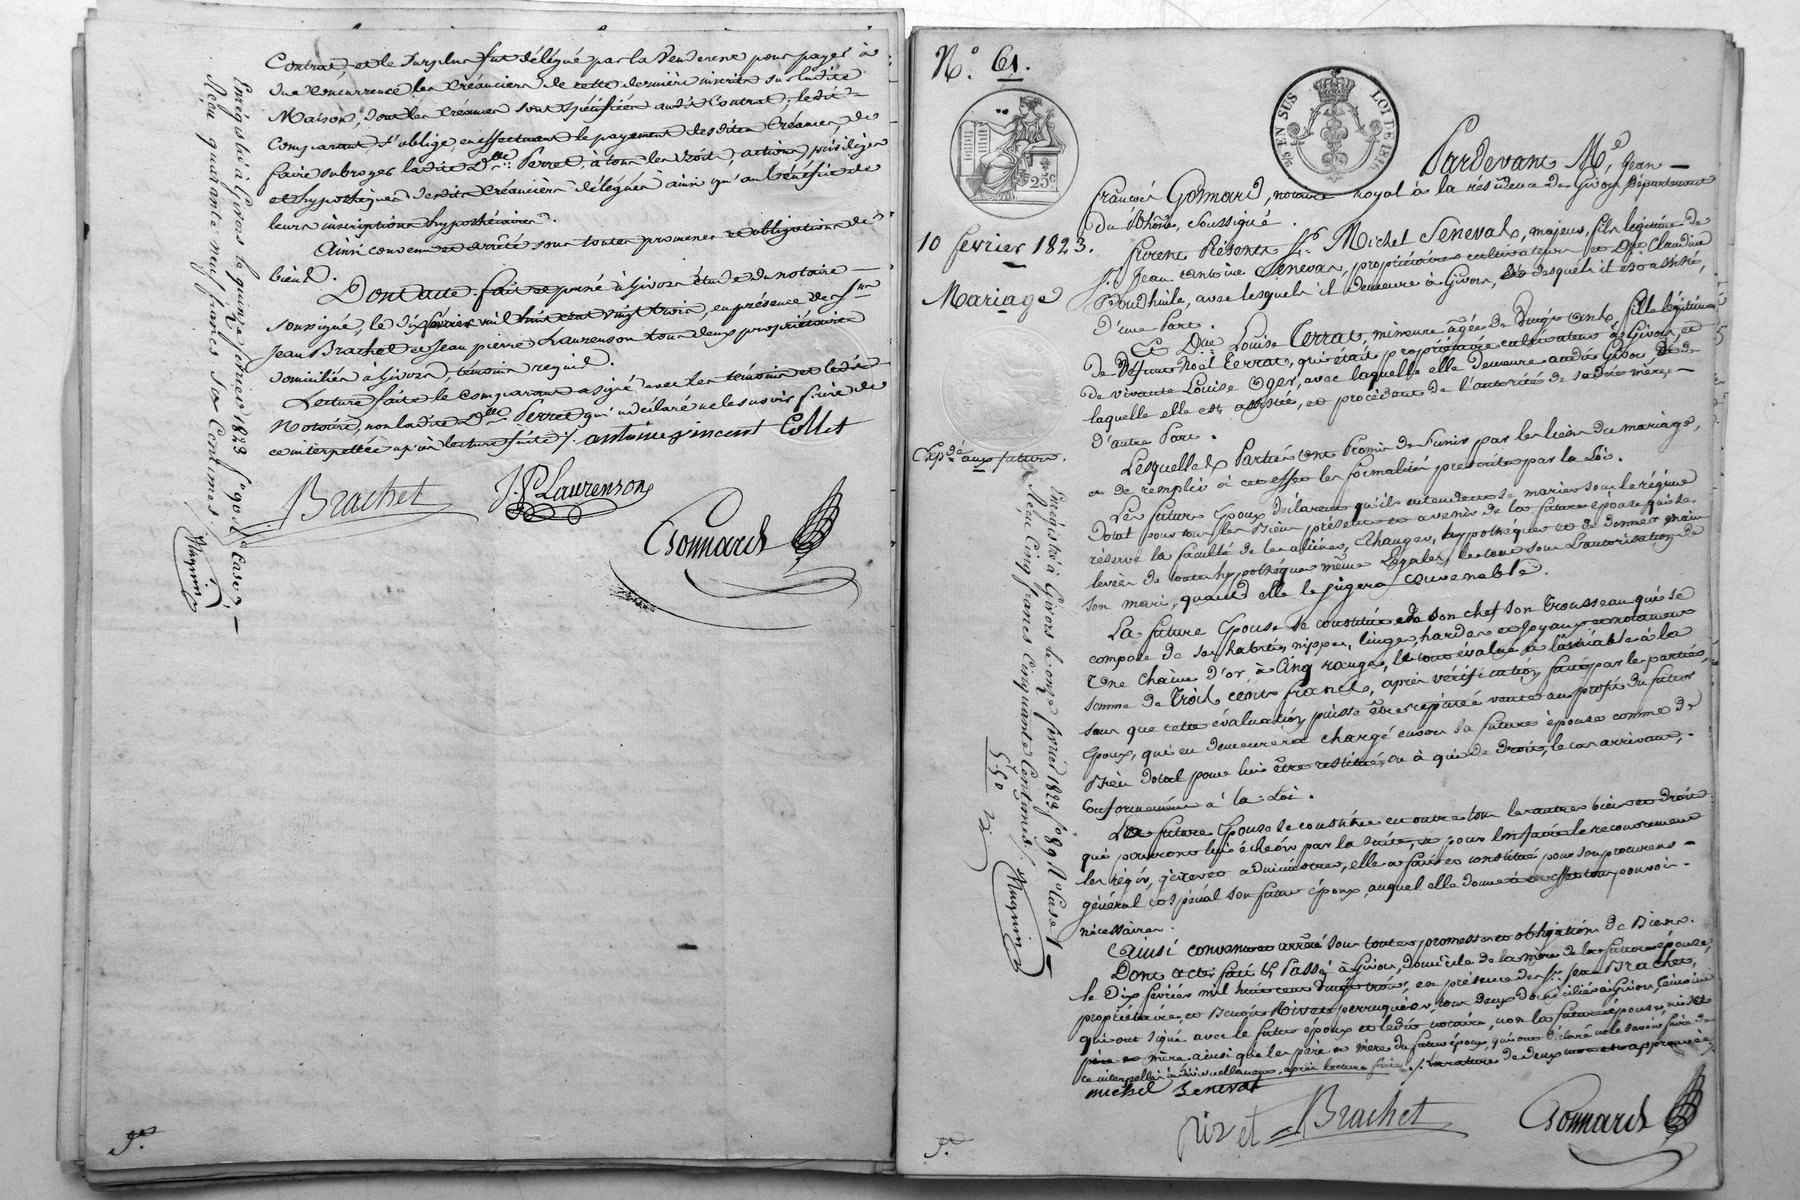 Contrat, et le surplus fut délégué par la Venderesse pour payer à
due concurrence les Créanciers de cette dernière inscrits sur ladite
Maison, dont les Créances sont spécifiées audit Contrat; ledit
comparant s'oblige, en effectuant le payement desdites Créances, de
faire subroger ladite Dlle Perret, à tous les droits, actions, privilèges
et hypothèques desdits Créanciers délégués ainsi qu'au bénéfice de
leurs inscriptions hypothécaires.
Ainsi convenu et arrêté sous toutes promesses et obligations de
bien.
Dont acte. fait et passé à Givors étude du notaire
soussigné, le dix février mil huit cent vingt trois, en présence de Srs
Jean Brachet et Jean pierre Laurenson tous deux propriétaires
domiciliés à Givors, témoins requis.
Lecture faite le comparant a signé avec les témoins et ledit
Notaire, non ladite Dlle Perret qui a déclaré ne le savoir faire de
ce interpellée après lecture faite ./. antoine vincent Collet
Brachet J. P. Laurenson
Gonnard
Enregistré à Givors le quinze février 1823 fo 90 Ro Case 2
Reçu quarante neuf francs six Centimes.
N° 61.
25c
EN SUS LOI DE 181
10 février 1823.
Mariage
Expdé aux futurs.
Enregistré à Givors le onze février 1823 fo 89 Vo Case 1
Reçu Cinq francs Cinquante Centimes.
5,50
Pardevant Me Jean
françois Gonnard, notaire royal à la résidence de Givors, Département
du Rhône, soussigné.
furent Présents Sr Michel Seneval, majeur, fils légitime de
Sr Jean antoine Seneval, propriétaire cultivateur et De Claudine
Poudhuile, avec lesquels il demeure à Givors, et desquels il est assisté,
d'une Part.
Et Dlle Louise Terrat, mineure âgée de Vingt ans, fille légitime
de Défunt Noël Terrat, qui était propriétaire cultivateur à Givors, et
de vivante Louise Oger, avec laquelle elle demeure audit Givors, de
laquelle elle est assistée, et procédant de l'autorité de sadite mère,
d'autre Part.
Lesquelles Parties ont Promis de s'unir par les liens du mariage,
et de remplir à cet effet les formalités prescrites par la Loi.
Les futurs Epoux déclarent qu'ils entendent se marier sous le régime
dotal pour tous les Biens présents et avenir de la future épouse qui se
réserve la faculté de les aliéner, Echanger, hypothéquer et de donner main
levée de toutes hypothèques même Légales, le tout sous l'autorisation de
son mari, quand elle le jugera convenable.
La future Epouse se constitue de son chef son Trousseau qui se
compose de ses habits, nippes, linges, hardes et Joyaux et notamment
Une Chaîne d'or, à Cinq rangs, le tout évalué à l'amiable à la
somme de trois cents francs, après vérification faite par les parties,
sans que cette évaluation puisse être réputée vente au profit du futur
Epoux, qui en demeurera chargé envers sa future épouse comme de
Bien dotal pour lui être restitué, ou à qui de droit, le cas arrivant,
Conformément à la Loi.
La future Epouse se constitue en outre tous les autres biens et droits
qui pourront lui échéoir par la suite, et pour en faire le recouvrement
les régir, gérer et administrer, elle a fait et constitué pour son procureur
général et spécial son futur époux, auquel elle donne à cet effet tous pouvoirs
nécessaires.
Ainsi convenu et arrêté sous toutes promesses et obligations de Biens.
Dont acte, fait et Passé à Givors, domicile de la mère de la future épouse,
le Dix février mil huit cent vingt trois, en présence de Srs Jean Brachet,
propriétaire, et Benoit Rivet perruquier, tous deux domiciliés à Givors, témoins
qui ont signé avec le futur époux et ledit notaire, non la future épouse, ni
père et mère ainsi que les père et mère du futur époux, qui ont déclaré ne le savoir faire de
ce interpellés individuellement, après lecture faite ./. Rarature de deux mots est approuvée
michel Seneval
Rivet Brachet Gonnard